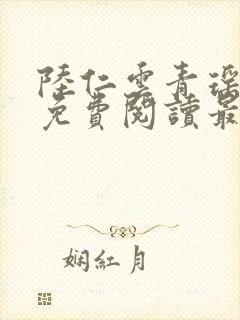 陸仁雲青瑤
免費閱讀最
娴紅月